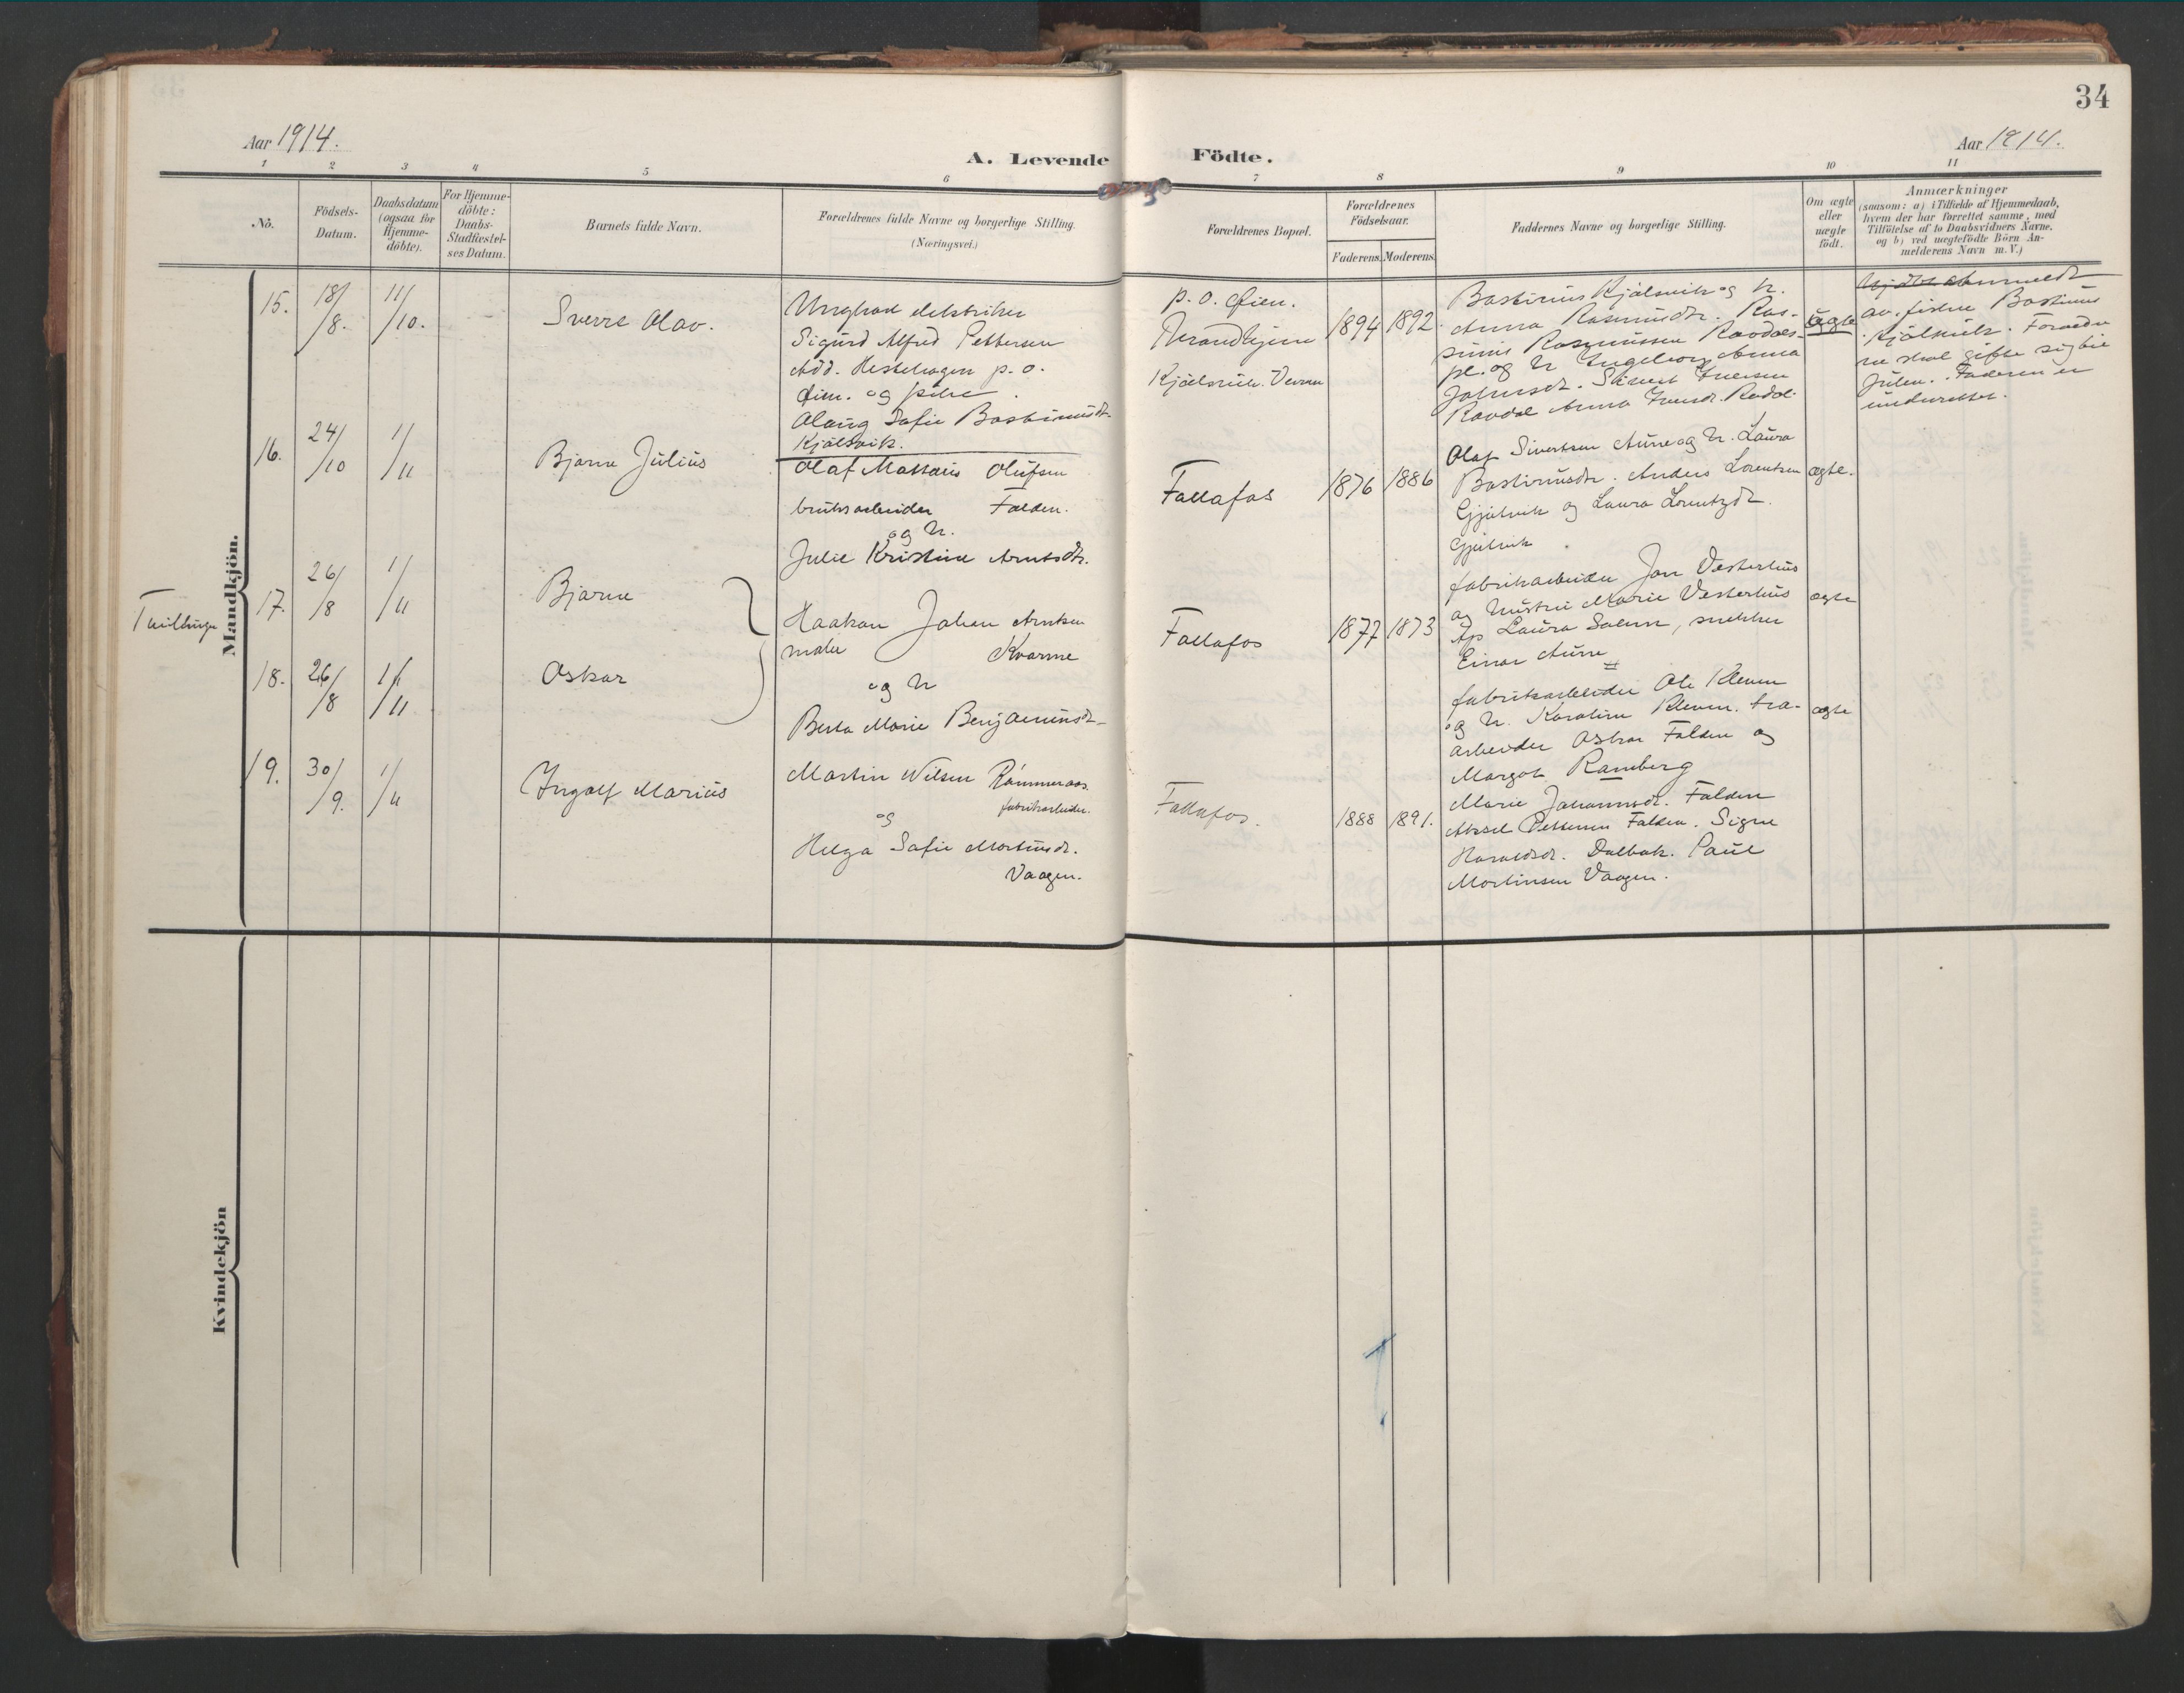 34
Aar 1914.
A. Levende Födte.
Aar 1914.
1 2 3 4 5 6 7 8 9 10 11
No.
Födsels-
Datum.
Daabsdatum
(ogsaa for
Hjemme-
döbte).
For Hjemme-
döbte:
Daabs-
Stadfæstel-
ses Datum.
Barnets fulde Navn.
Forældrenes fulde Navne og borgerlige Stilling.
(Næringsvei.)
Forældrenes Bopæl.
Forældrenes
Födselsaar.
Faderens. Moderens.
Faddernes Navne og borgerlige Stilling.
Om ægte
eller
uægte
födt.
Anmærkninger
(saasom: a) i Tilfælde af Hjemmedaab,
hvem der har forrettet samme, med
Tilföielse af to Daabsvidners Navne.
og b) ved uægtefödte Börn An-
melderens Navn m. V.)
Mandkjön.
15.
18/8.
11/10.
Sverre Olav.
Ungkar elektriker
Sigurd Alfred Pettersen
Add. Hestehagen p. o.
Øien. og pike
Olaug Sofie Bastinusdt.
Kjälsvik.
p. o. Øien.
Trondhjem
Kjälsvik. Vernn
1894 1892.
Bastinus Kjälsvik og h.
Anna Rasmusdt. Ras-
mus Rasmussen Ravdals-
pl. og h Ingeborg Anna
Johnsdt. Sivert Iversen
Ravdal Anna Iversdt. Ravdal
uægte
anmeldt
av fisker Bastinus
Kjälsvik. Foraldre
ne skal gifte sig til
Julen. Faderen er
underrettet.
16.
24/10
1/11
Bjarne Julius
Olaf Mattæus Olufsen
bruksarbeider Falden.
og h.
Julie Kristine Arntsdtr.
Fallafos
1876 1886
Olaf Sivertsen Aune og h. Laura
Bastinusdtr. Anders Lorentsen
Gjälvik og Laura Lorentzdt.
Gjälvik.
ægte.
Tvillinger
17.
26/8
1/11
Bjarne
Haakon Johan Arntsen
maler Kvarme
og h
Berta Marie Benjaminsdt.
Fallafos
1877 1873
fabrikarbeider Jon Vesterhus
og hustru Marie Vesterhus
Laura Solem, snekker
Einar Aune
ægte
18.
26/8
1/11
Oskar
fabrikarbeider Ole Kleven
og h. Karoline Kleven. træ-
arbeider Oskar Falden og
Margot Ramberg
ægte
19.
30/9.
1/11
Ingolf Marius
Martin Nilsen Römmeraas.
fabrikarbeider.
og
Helga Sofie Martinsdt.
Vaagen.
Fallafos.
1888 1891.
Marie Johannesdt. Falden
Aksel Pettersen Falden. Signe
Haraldsdt. Dalbak. Paul
Martinsen Vaagen.
Kvindekjön